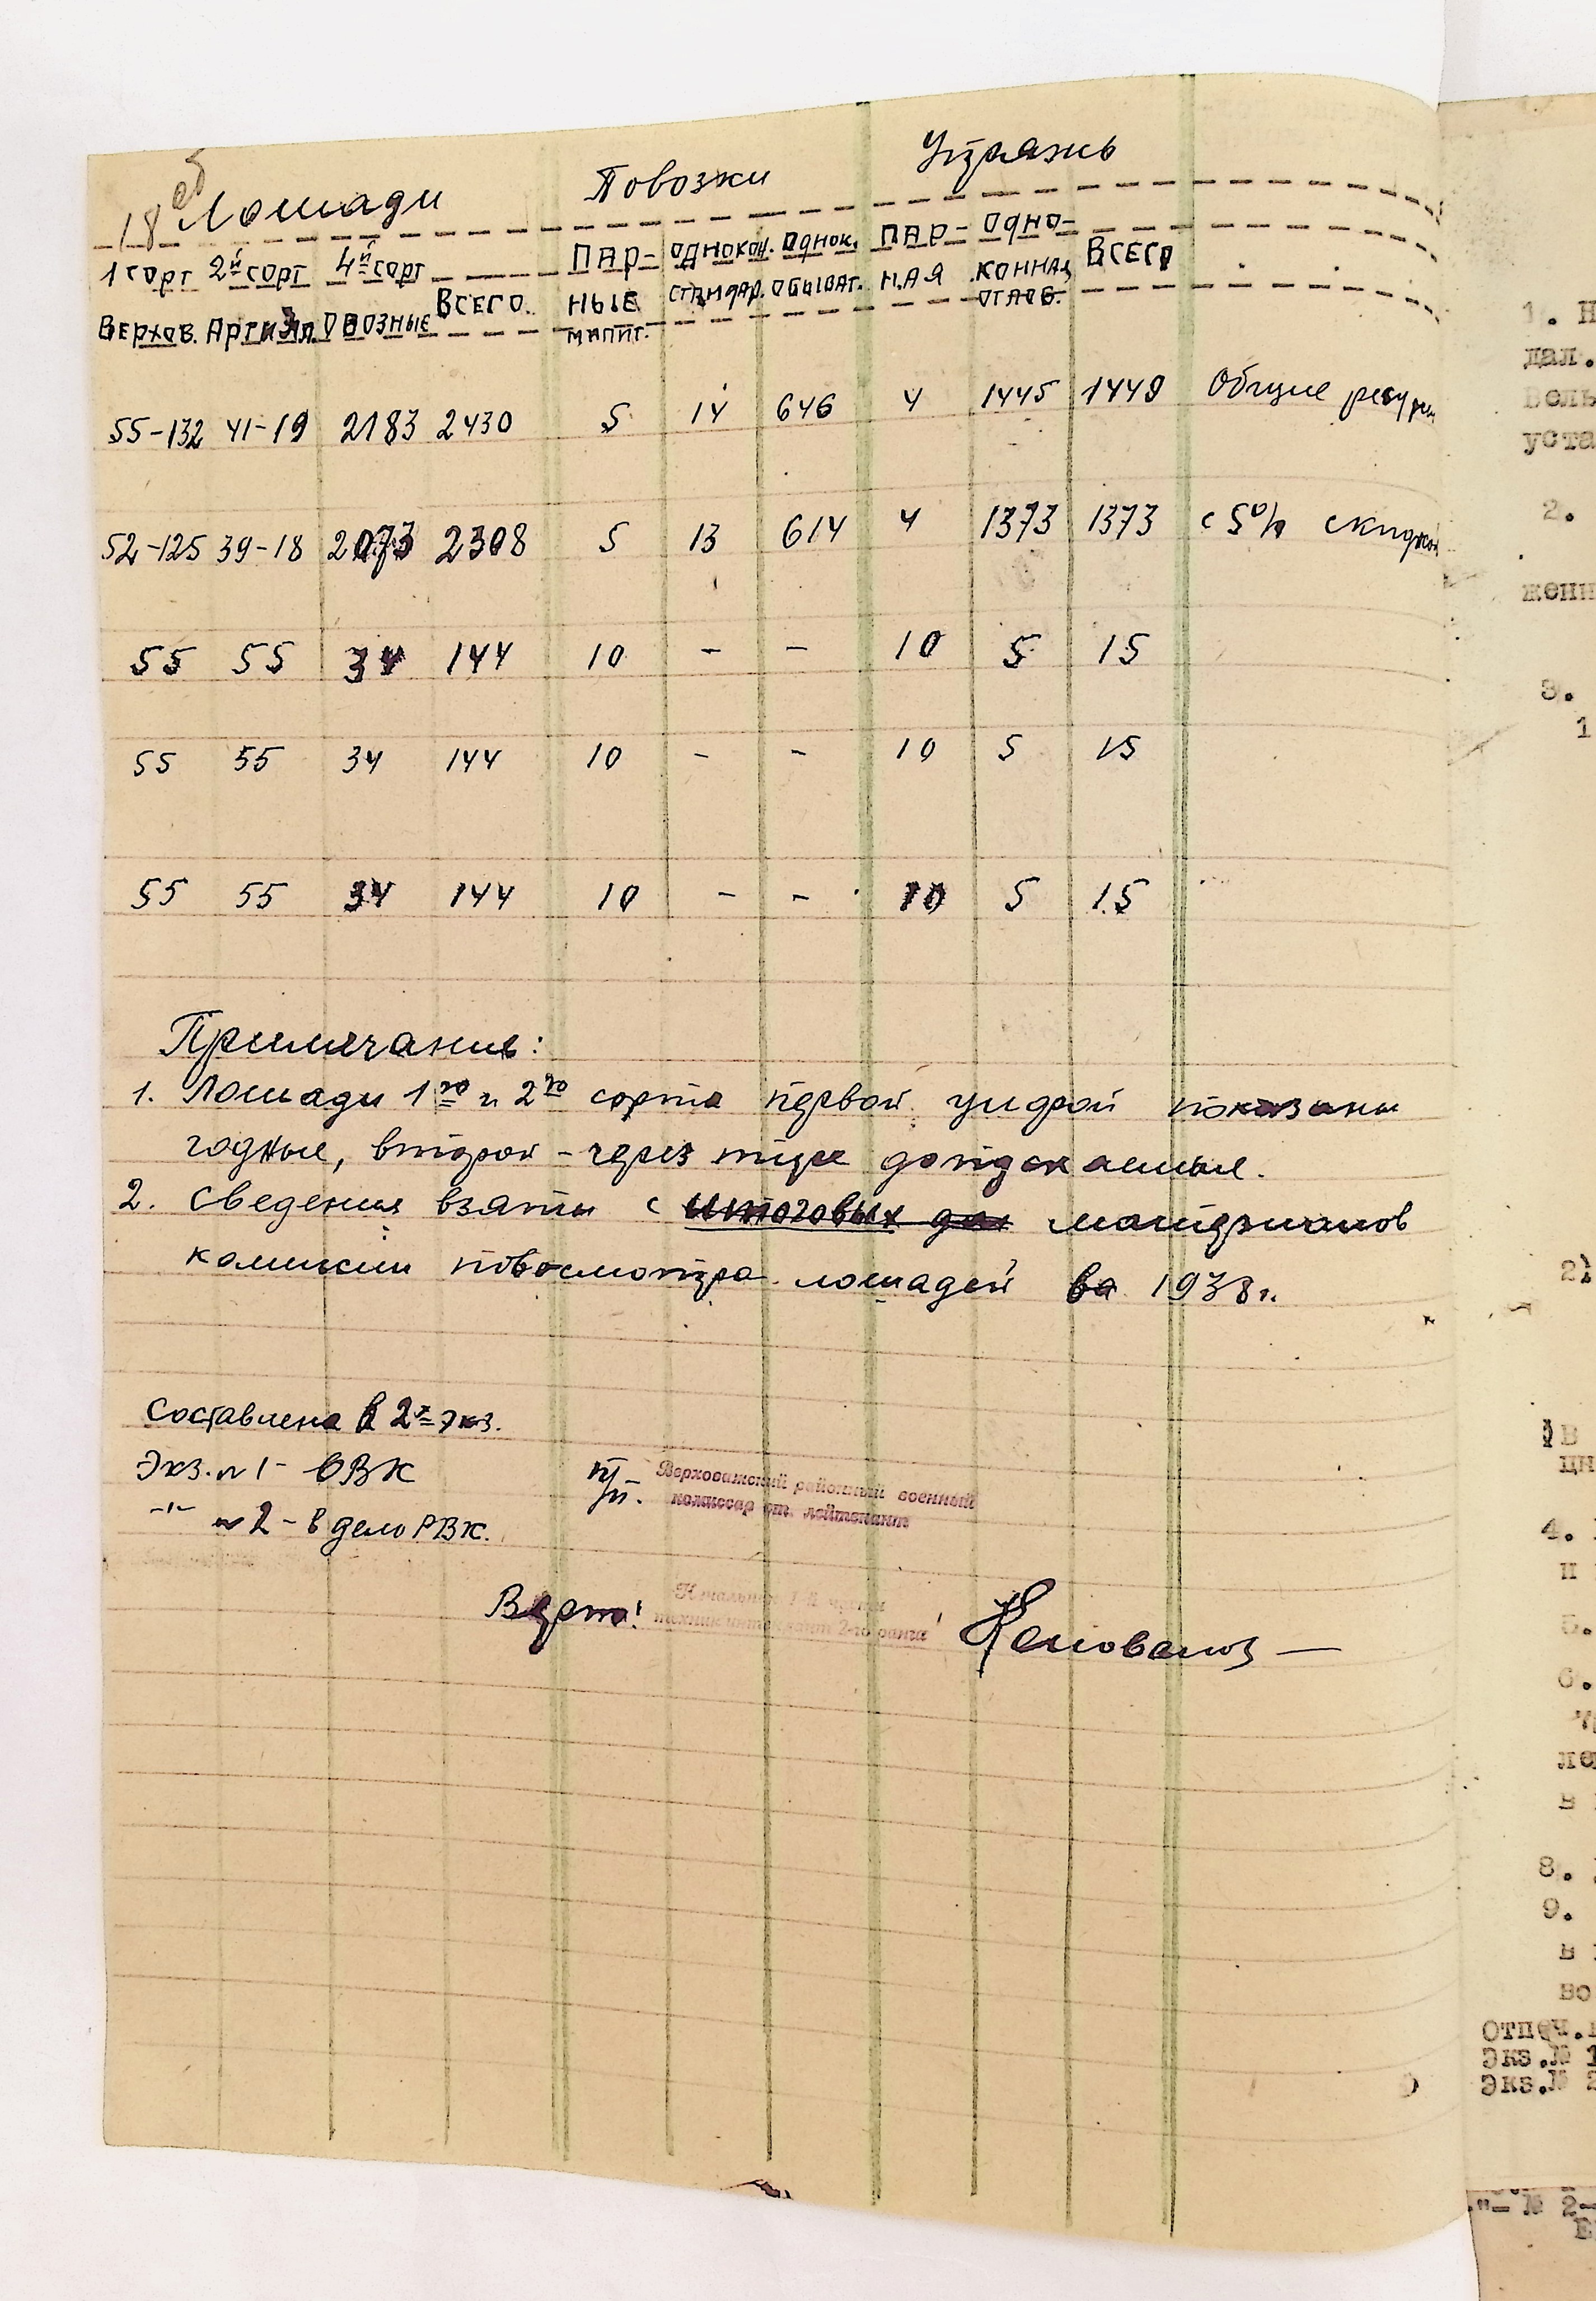 18 об
Лошади Повозки Упряжь
1 сорт 2й сорт 4й сорт ПАР- ОДНОКОН. ОДНОК. ПАР- ОДНО-
Верхов. Артил. ОБОЗНЫЕ ВСЕГО. НЫЕ СТАНДАР. ОБЫВАТ. НАЯ КОННАЯ ВСЕГО
55-132 41-19 2183 2430 5 14 646 4 1445 1449 Общие
52-125 39-18 2073 2308 5 13 614 4 1373 1373 с 5% скидкой
55 55 34 144 10 - - 10 5 15
55 55 34 144 10 - - 10 5 15
55 55 34 144 10 - - 10 5 15
Примечание:
1. Лошади 1го и 2го сорта первой цифрой показаны
годные, второй - через тире допускаемые.
2. Сведения взяты с итоговых материалов
комиссии повосмотра лошадей за 1938 г.
Составлена в 2х экз.
Экз. № 1 - ОВК
-"- № 2 - в дело РВК.
п/п. Верховажский районный военный
комиссар ст. лейтенант
Верно: Начальник 1-й части
техник интендант 2-го ранга Коновалов
1. Н
дал.
Вель
уста
2.
женн
3.
1
2)
В
цн
4.
и
5.
6.
ле
в
8.
9.
в
во
Отпеч.
Экз.№ 1
Экз.№ 2
"- № 2-